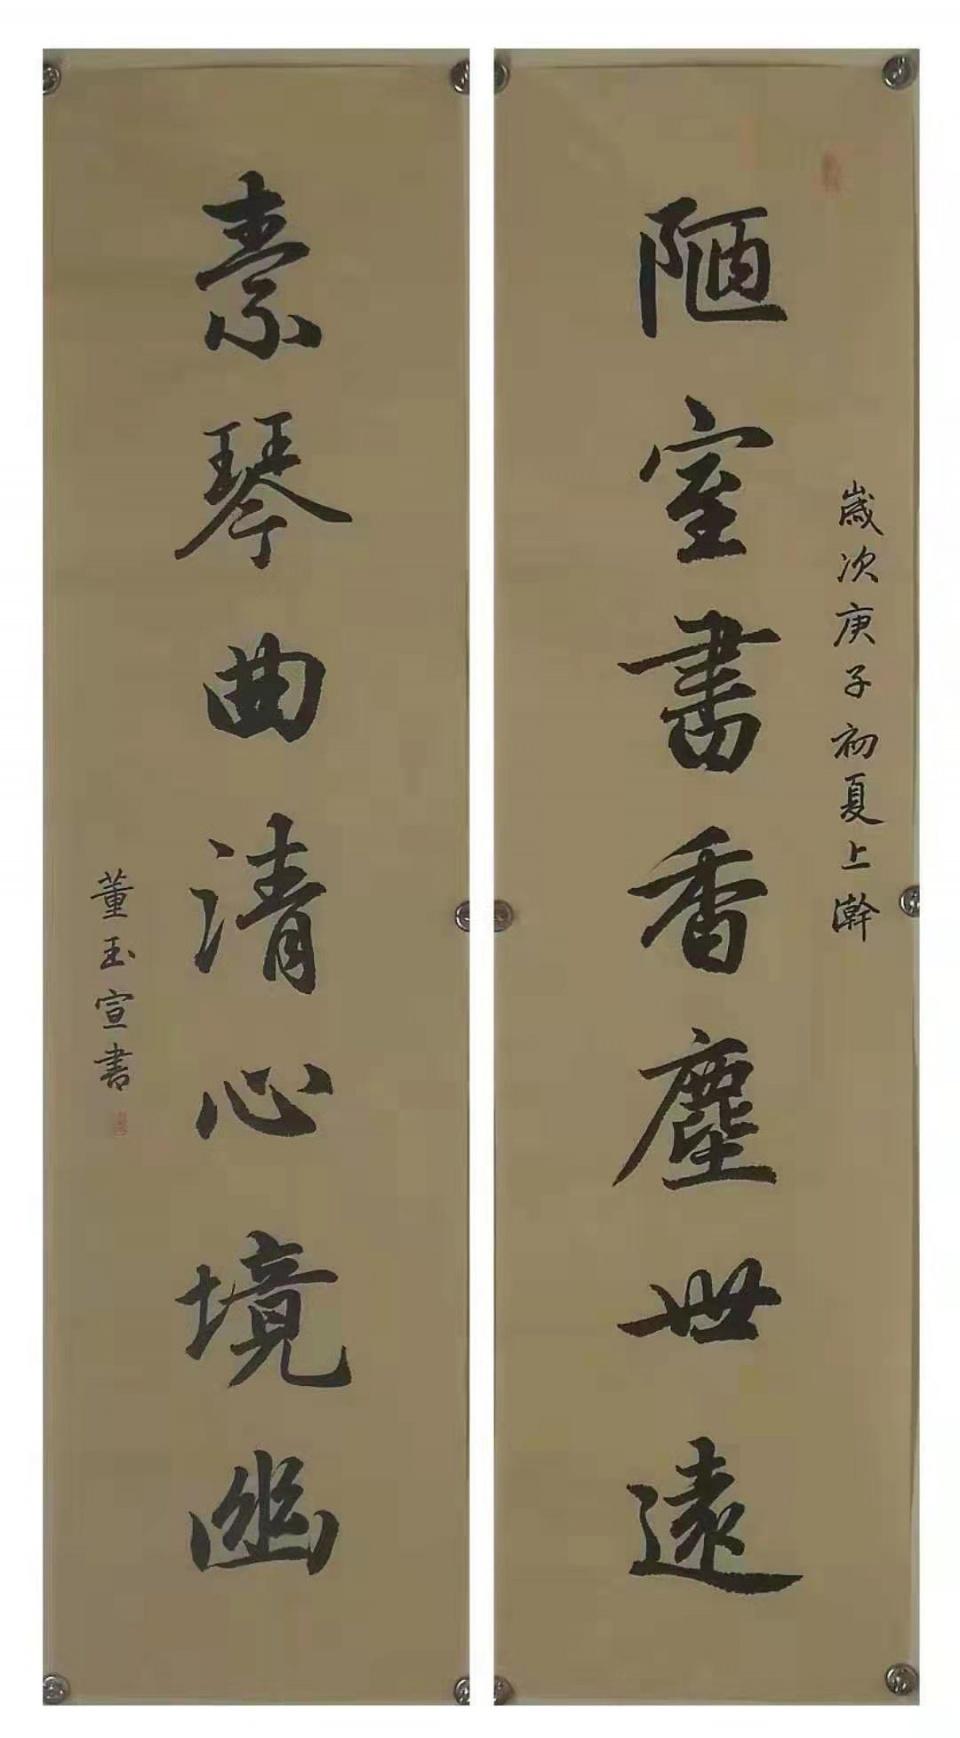 歲次庚子初夏上澣
陋室書香塵世遠
素琴曲清心境幽
董玉宣书